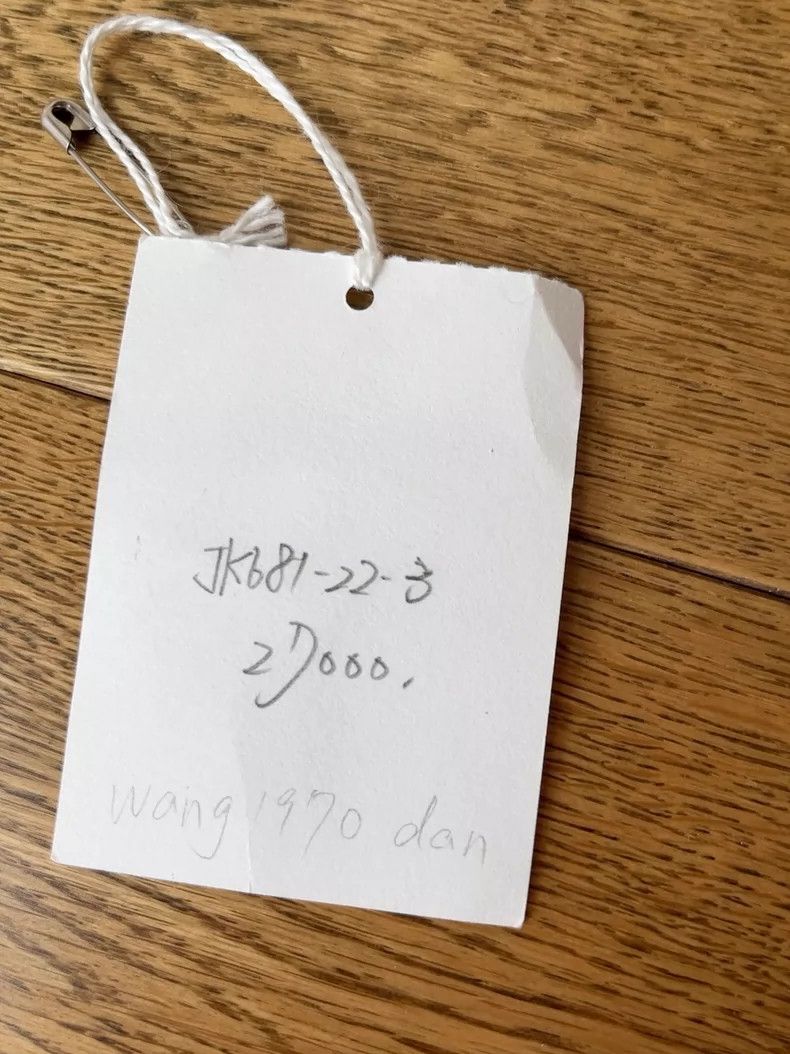 JK681-22-3
27000.
wang 1970 dan